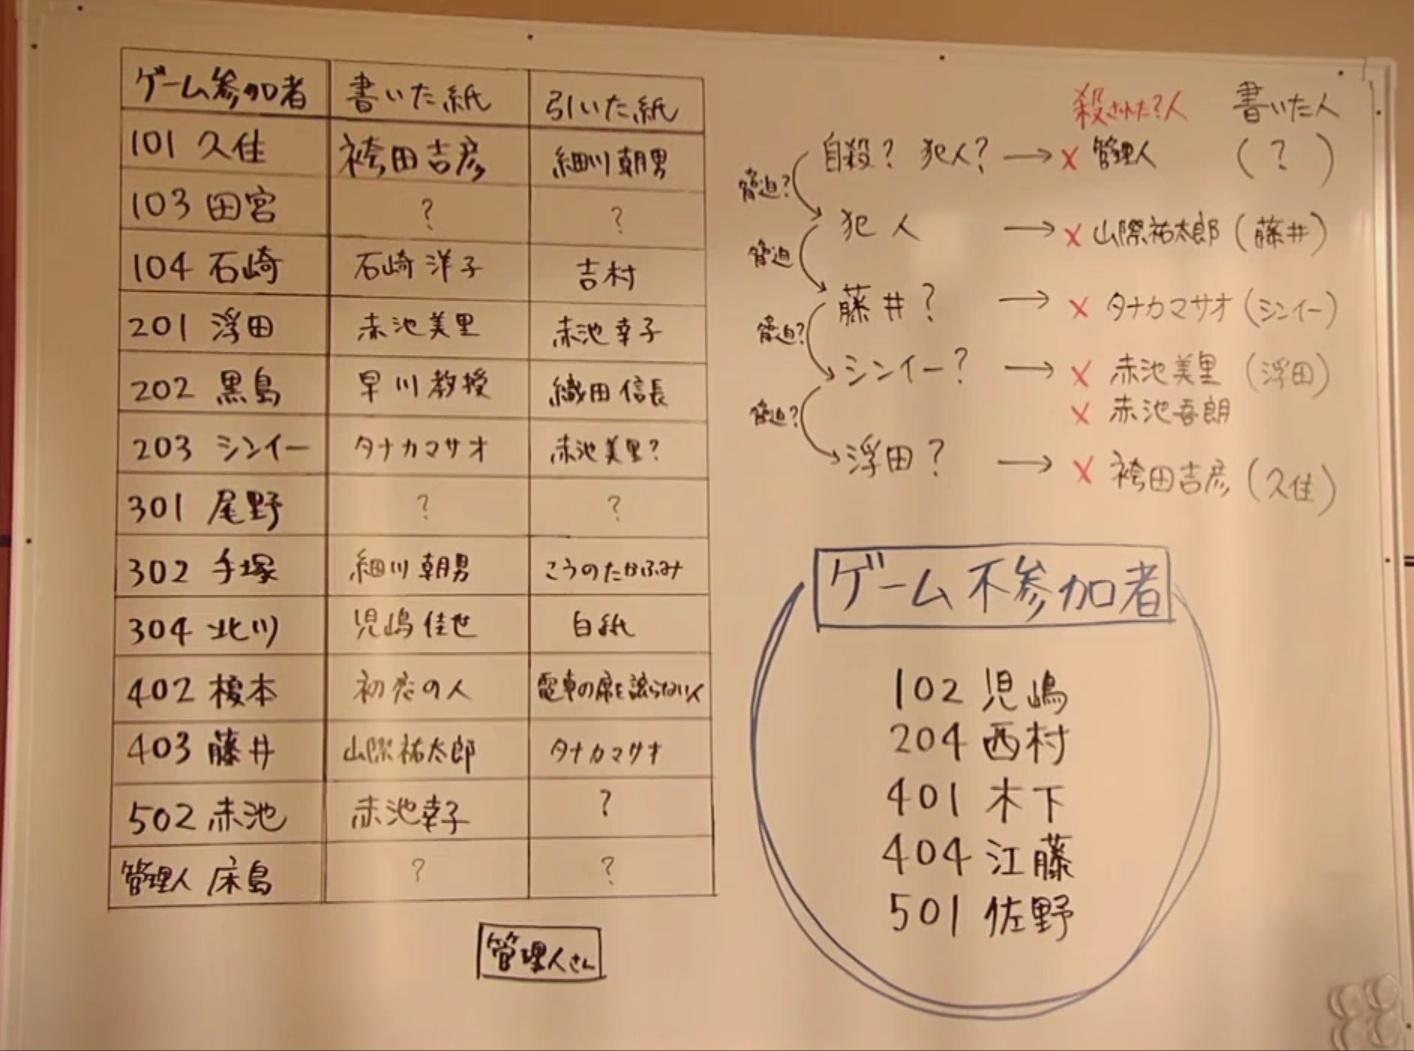 ゲーム参加者 書いた紙 引いた紙
101 久住 袴田吉彦 細川朝男
103 田宮 ? ?
104 石崎 石崎洋子 吉村
201 浮田 赤池美里 赤池幸子
202 黒島 早川教授 織田信長
203 シンイー タナカマサオ 赤池美里?
301 尾野 ? ?
302 手塚 細川朝男 こうのたかふみ
304 北川 児嶋佳世 白紙
402 榎本 初恋の人 電車の席を譲らない人
403 藤井 山際祐太郎 タナカマサオ
502 赤池 赤池幸子 ?
管理人 床島 ? ?
管理人さん
殺された?人 書いた人
自殺? 犯人? → × 管理人 (?)
脅迫?
犯人 → × 山際祐太郎 (藤井)
脅迫
藤井? → × タナカマサオ (シンイー)
脅迫?
シンイー? → × 赤池美里 (浮田)
× 赤池吾朗
脅迫?
浮田? → × 袴田吉彦 (久住)
ゲーム不参加者
102 児嶋
204 西村
401 木下
404 江藤
501 佐野